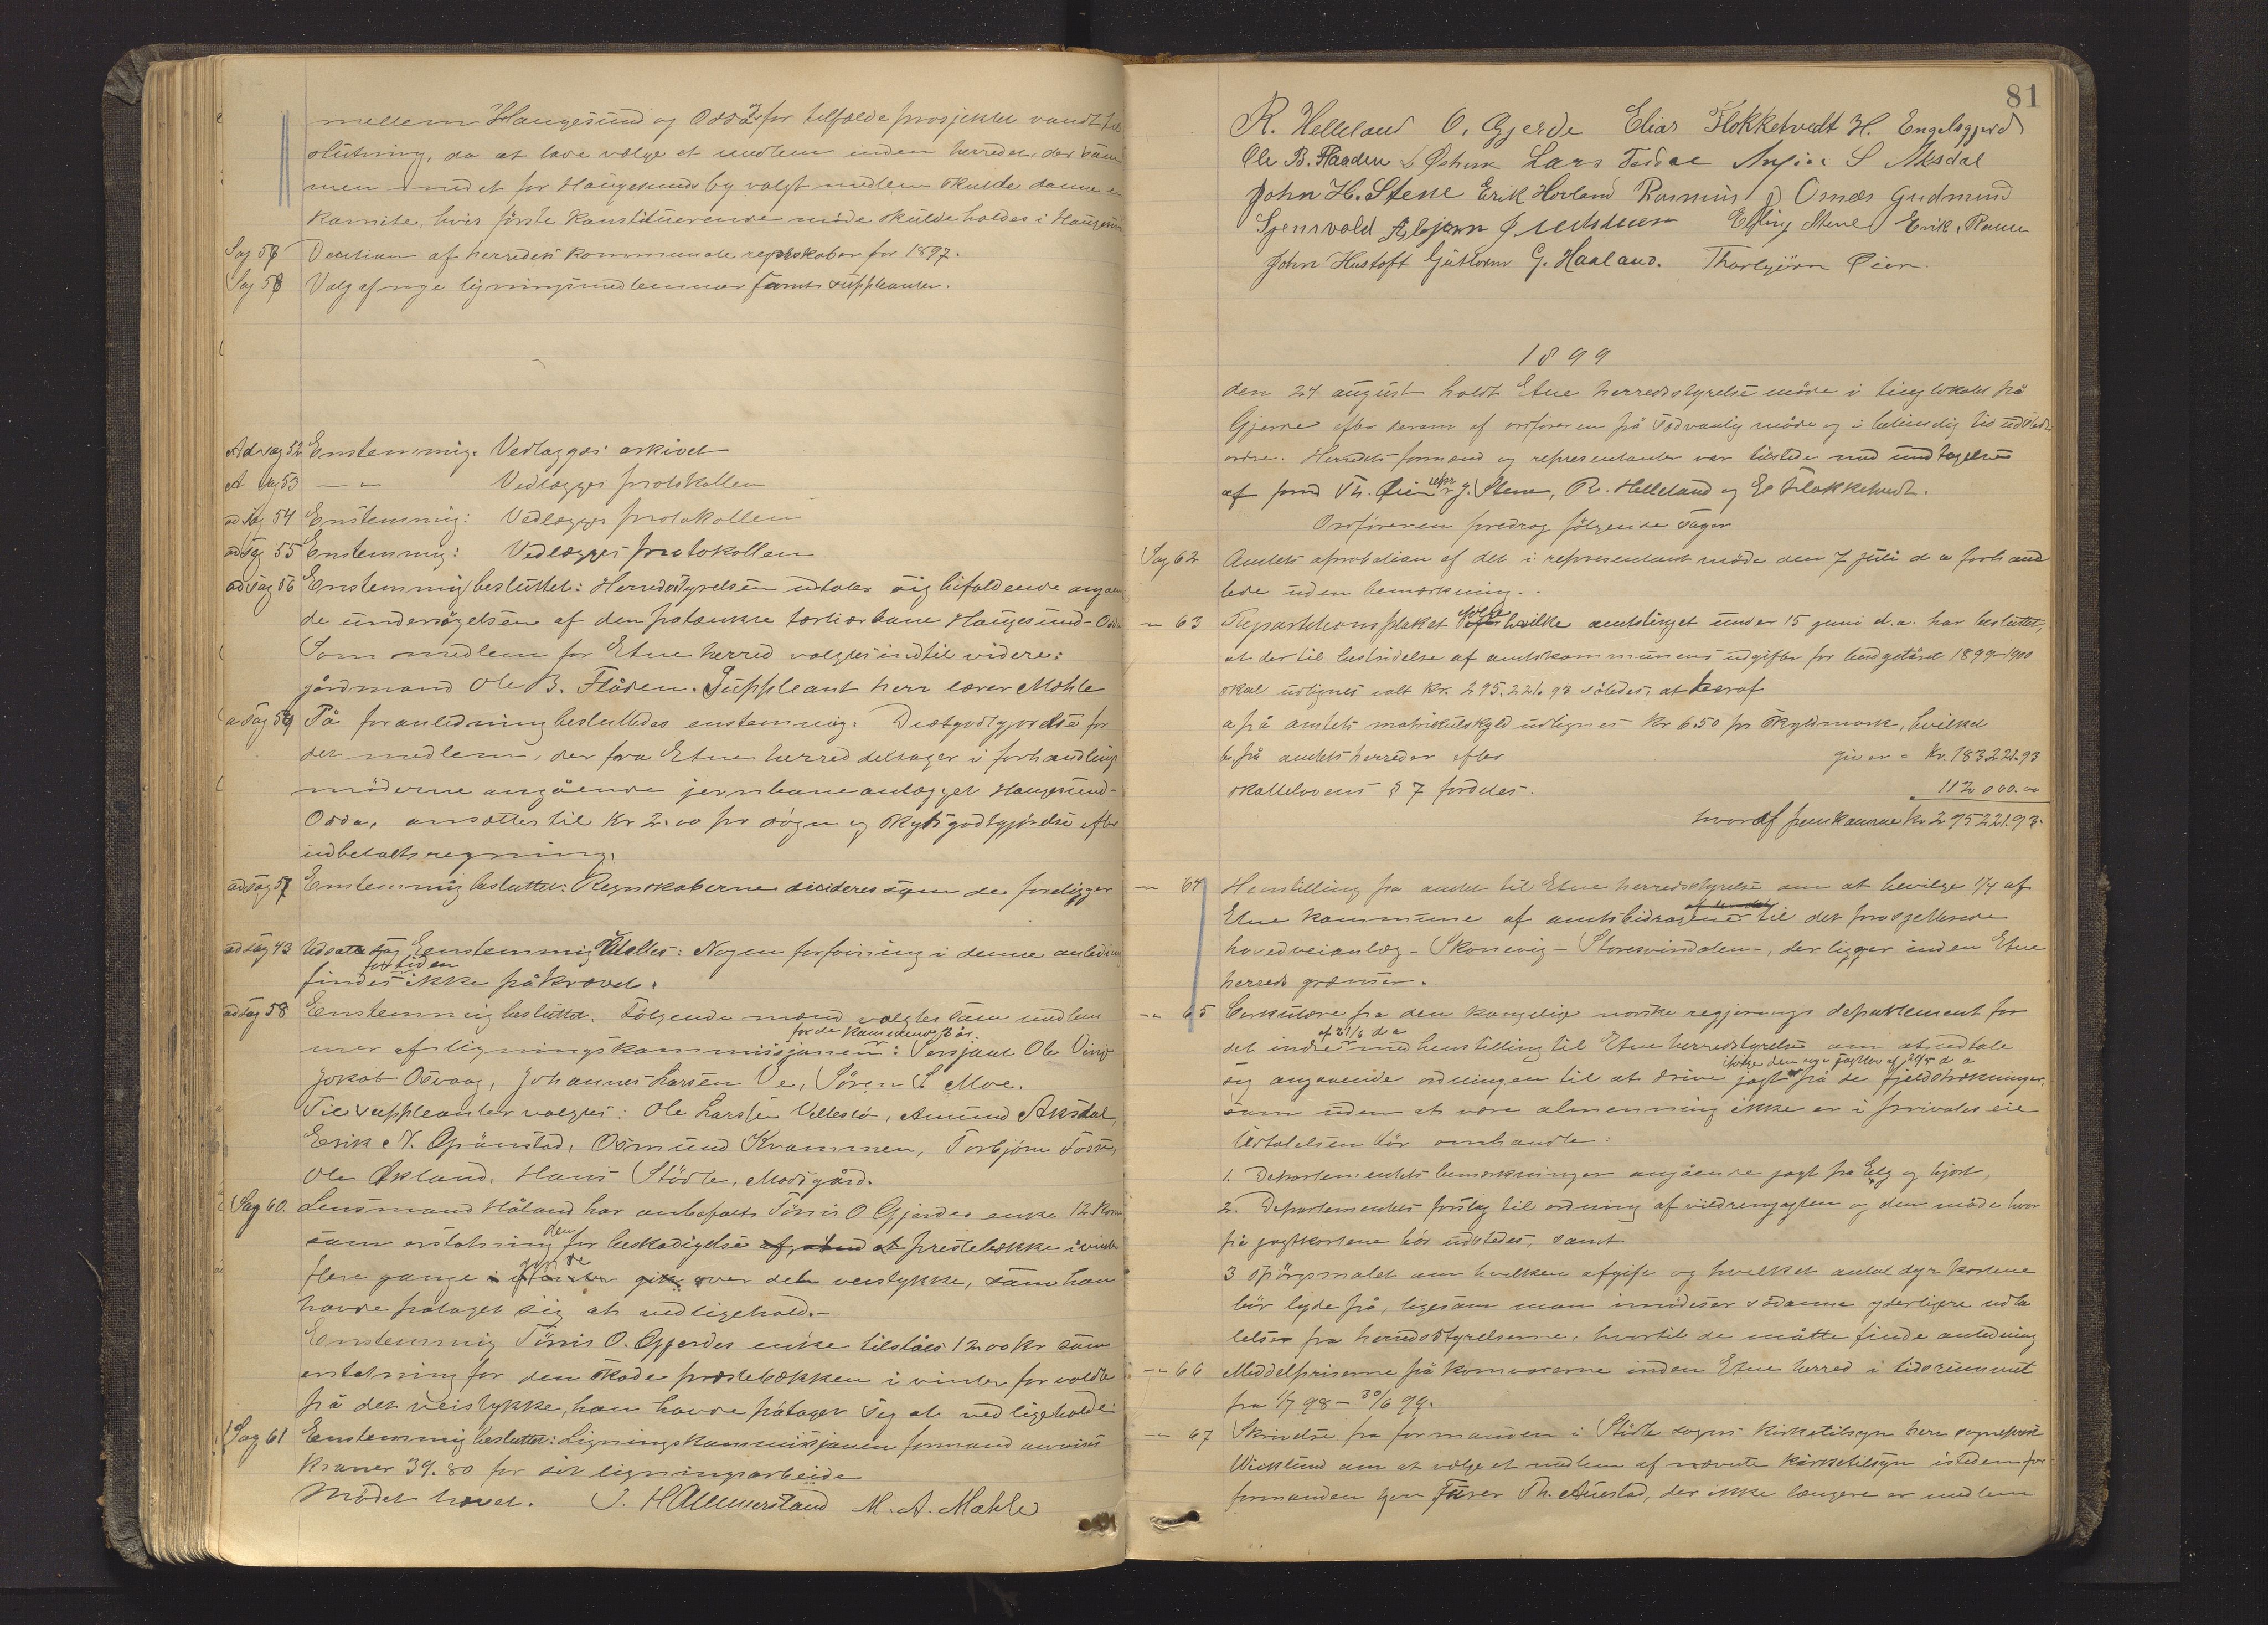 mellem Haugesund og Odda, for tilfælde prosjektet vandt til
slutning, da at lade vælge et medlem inden herredet, der sam
men med et for Haugesunds by valgt medlem skulde danne en
komite, hvis første konstituerende møde skulde holdes i Haugesun
Sag 57 Decision af herredets kommunale regnskaber for 1897.
Sag 58 Valg af nye ligningsmedlemmer samt suppleanter.
Ad sag 52 Enstemmig. Vedlægges arkivet
Ad sag 53 — " — Vedlægges protokollen
ad sag 54 Enstemmig: Vedlægges protokollen
ad sag 55 Enstemmig: Vedlægges protokollen
ad sag 56 Enstemmig besluttet: Herredstyrelsen udtaler sig bifaldende angaaen
de undersøgelsen af den patænkte tertiærbane Haugesund-Odda
Som medlem for Etne herred valgtes indtil videre:
gårdmand Ole B. Flåden. Suppleant herr lærer Mæhle
ad sag 59 På foranledning besluttedes enstemmig: Diætgodtgjørelse for
det medlem, der fra Etne herred deltager i forhandlings
møderne angående jernbaneanlægget Haugesund-
Odda, ansættes til Kr 2.00 pr døgn og skydsgodtgjørelse efter
udbetalt regning.
ad sag 57 Enstemmig besluttet: Regnskaberne decideres som de foreligger
ad sag 43 Udsatte sag Enstemmig udtaltes: Nogen forføining i denne anledning
findes for tiden ikke påkrævet.
ad sag 58 Enstemmig besluttet. Følgende mænd valgtes som medlem
mer af ligningskommissjonen for de kommende 3 år: Sersjant Ole Vinje
Jakob Osvaag, Johannes Larsen Ve, Søren S. Moe.
Til suppleanter valgtes: Ole Larsen Velleslø, Amund Aksdal,
Erik N. Grønstad, Osmund Kvammen, Torbjørn Fosse,
Ole Økland, Hans Stødle, Mosgård.
Sag 60. Lensmand Håland har anbefalt Tønnis O Gjerdes enke 12 Kron
som erstatning for den beskadigelse af, prestebække i vinter
flere gange gjorde over det veistykke, som han
havde påtaget sig at vedligehold.—
Enstemmig Tønnis O. Gjerdes enke tilståes 12.00 kr som
erstatning for den skade prestebækken i vinter forvoldte
på det veistykke, han havde påtaget sig at vedligeholde.
Sag 61 Enstemmig besluttet: Ligningskommissjonen formand anvises
Kroner 39.80 for sit ligningsarbeide
Mødet hævet. J. H Allmerstand M. A. Mæhle
81
R. Helleland O. Gjerde Elias Flokketvedt H. Engelsgjerd
Ole B. Flaaden Lars Tesdal S Aksdal
John H. Stene Erik Hovland Rasmus J Omnes Gudmund
Svensvold Asbjørn Elling Stene Erik Ramn
John Hustoft Guttorm G. Haaland. Thorbjørn Øien.
1899
den 24 august holdt Etne herredsstyrelse møde i tinglokalet på
Gjerde efter derom af ordføreren på sædvanlig måde og i betimelig tid udstedt
ordre. Herredets formænd og representanter var tilstede med undtagelse
af formd Th. Øien repr J. Stene, R. Helleland og E Flokketvedt.
Ordføreren foredrog følgende sager
Sag 62 Amtets aprobation af det i representant møde den 7 juli d a forhand
lede uden bemærkning.
— " 63 Repartitionsplakat ifølge hvilke amtstinget under 15 juni d.a. har besluttet,
at der til bestridelse af amtskommunens udgifter for budgetåret 1899–1900
skal udlignes ialt Kr. 295.221.93 således, at heraf
a på amtets matrikulskyld udlignes Kr 6.50 pr skyldmark, hvilket
b. på amtets herreder efter giver = Kr. 183.221.93
skattelovens § 7 fordeles. 112 000.00
hvoraf fremkomme kr 295221.93.
— " 64 Henstilling fra amtet til Etne herredsstyrelse om at bevilge 1/4 af
Etne kommune af amtsbidragene til det prosjekterede
hovedveianlæg - Skonevig - Storesvindalen -, der ligger inden Etne
herreds grænser.
— " 65 Cirkulære fra den kongelige norske regjerings departement for
det indre af 21/6 d a med henstilling til Etne herredstyrelse om at udtale
sig angaaende ordningen til at drive jagt ifølge den nye jagtlov af 20/5 d a på de fjeldstrækninger,
som uden at være almenning ikke er i privates eie
Udtalelsen bør omhandle:
1. Departementets bemærkninger angående jagt på Elg og hjort,
2. Departementets forslag til ordning af vildrenjagten og den måde hvor
på jagtkortene bør udstedes, samt
3 spørgsmalet om hvilken afgift og hvilket antal dyr kortene
bør lyde på, ligesom man imødeser sådanne yderligere udta
lelser fra herredsstyrelserne, hvortil de måtte finde anledning
— " 66 Middelpriserne på kornvarerne inden Etne herred i tidsrummet
fra 1/7 98 – 30/6 99.
— " 67 Skrivelse fra formanden i Stødle sogns kirketilsyn herr sogneprest
Wicklund om at vælge et medlem af nævnte kirketilsyn istedenfor
formanden herr Th. Auestad, der ikke længere er medlem